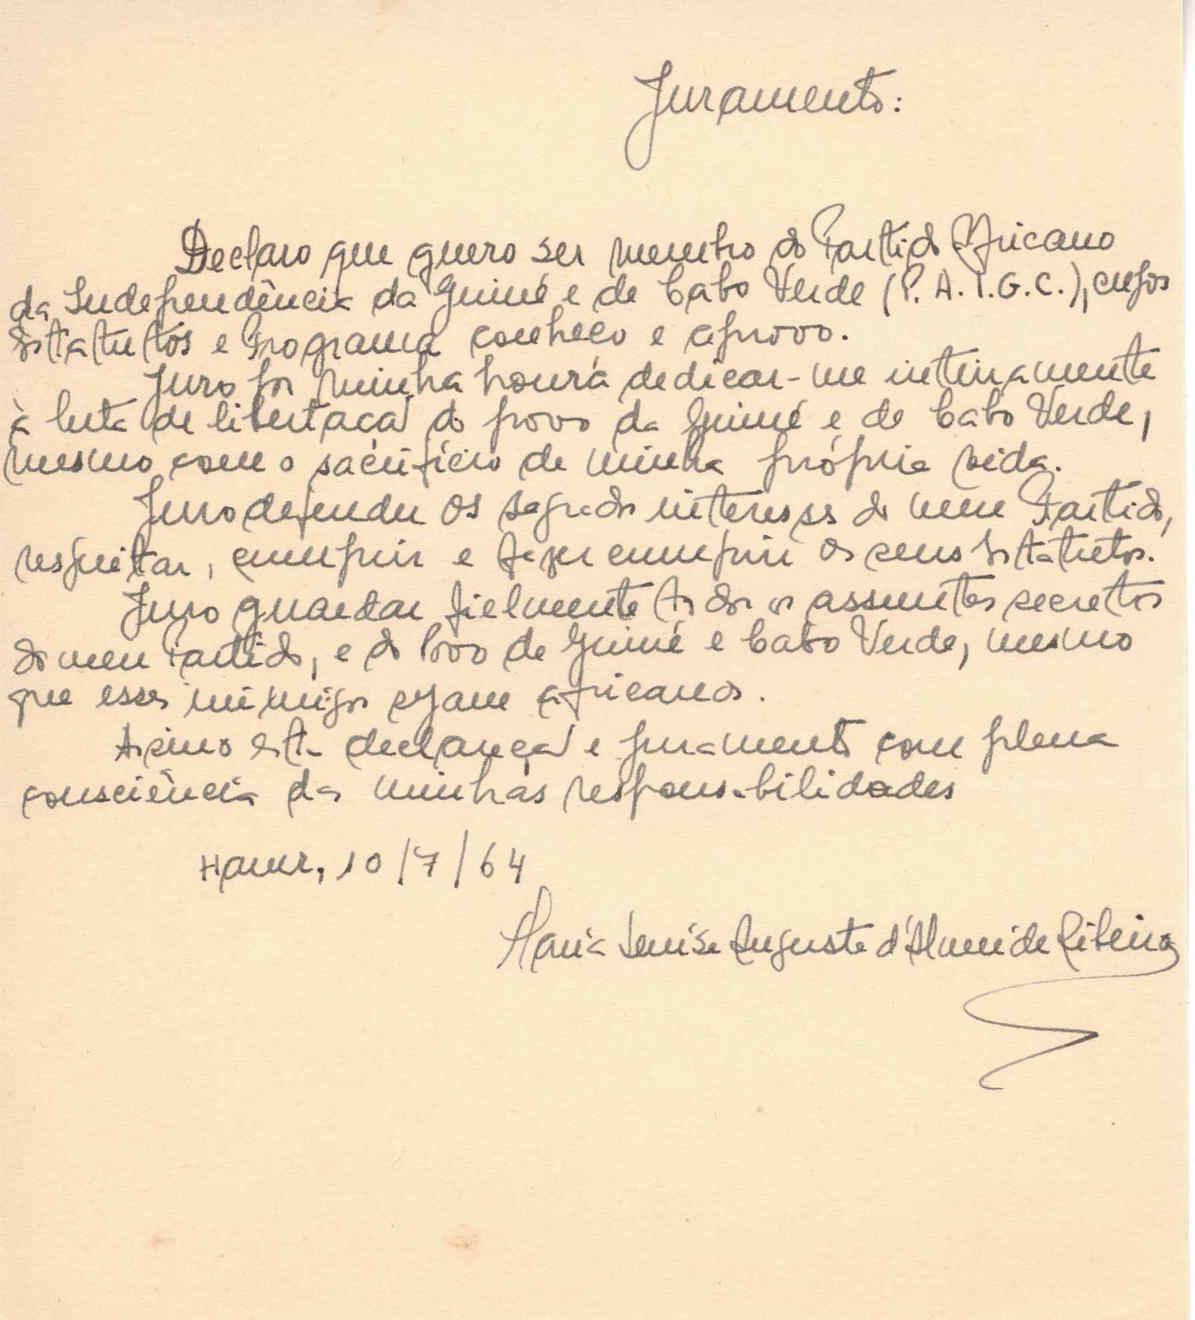 Juramento:
Declaro que quero ser membro do Partido Africano
da Independência da Guiné e de Cabo Verde (P. A. I. G. C.), cujos
Estatutos e Programa conheço e aprovo.
Juro por minha honra dedicar-me inteiramente
à luta de libertaçaõ do povo da Guiné e de Cabo Verde,
mesmo com o sacrifício de minha própria vida.
Juro defender os sagrados interesses do meu Partido,
respeitar, cumprir e fazer cumprir os seus Estatutos.
Juro guardar fielmente todos os assuntos secretos
do meu Partido, e do Povo de Guiné e Cabo Verde, mesmo
que esses inimigos sejam africanos.
Assino esta declaraçaõ e juramento com plena
consciência das minhas responsabilidades
10/7/64
Maria Augusta d'Almeida Ribeiro